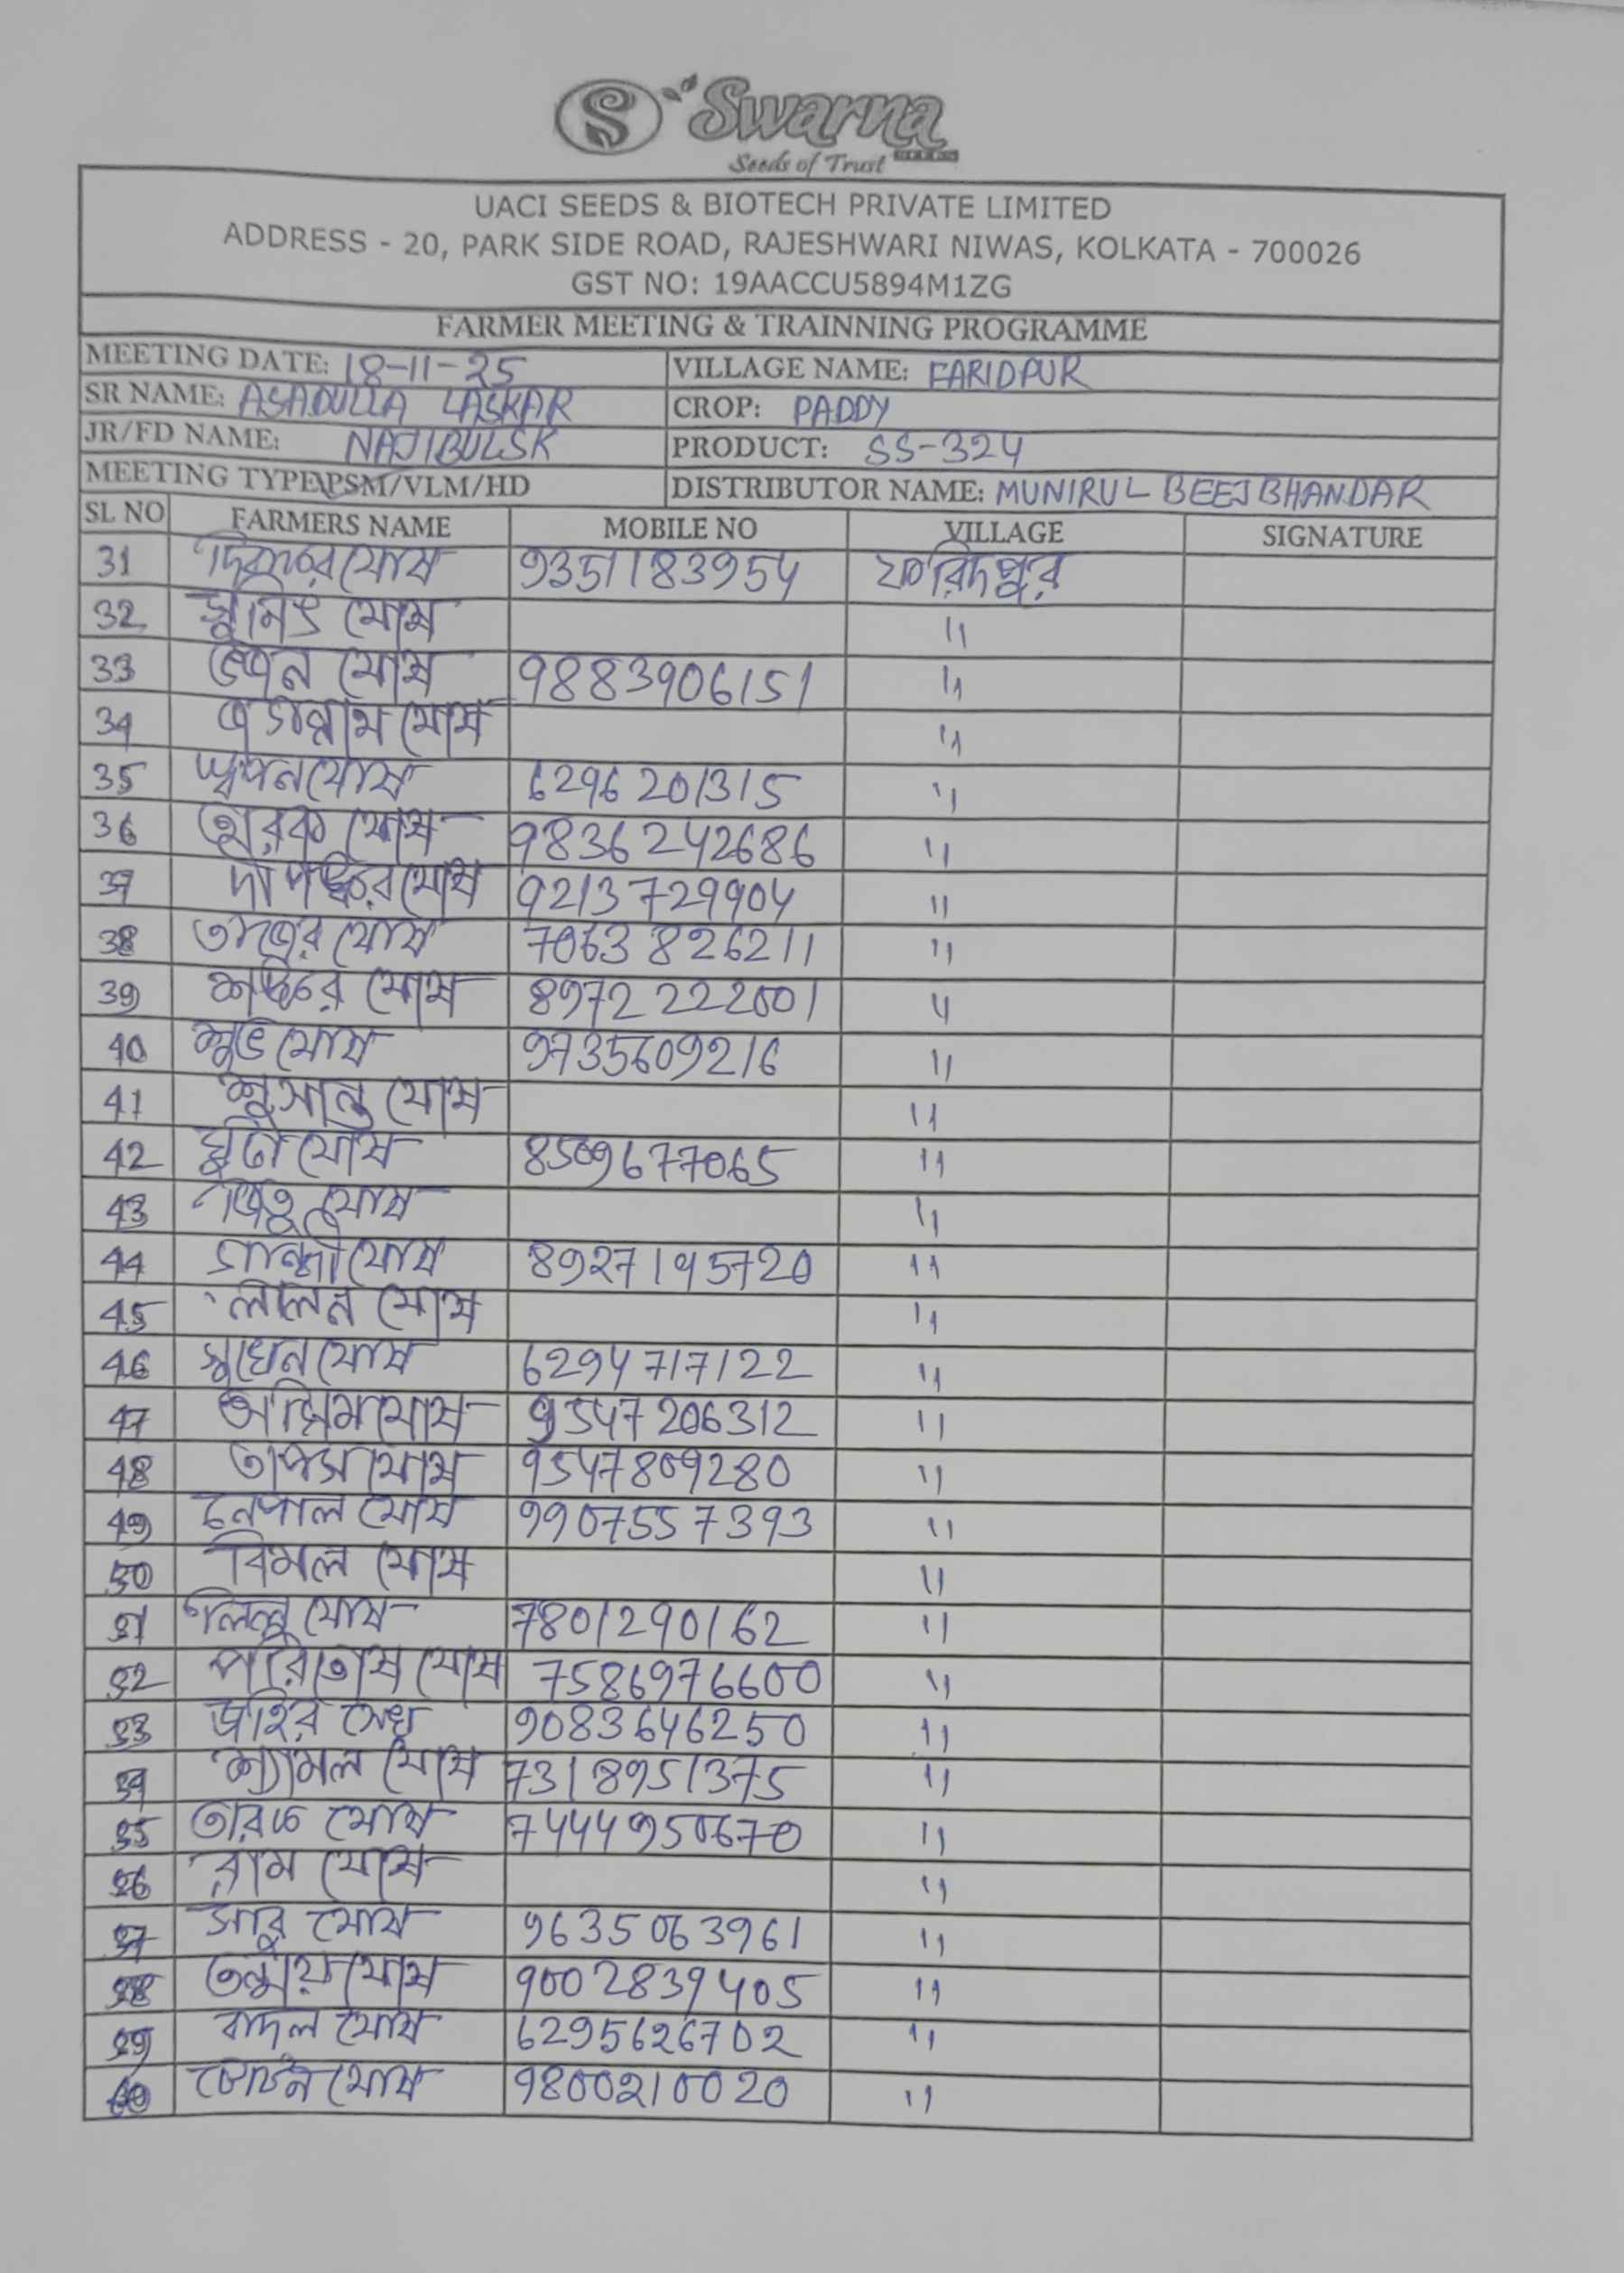 Swarna
SEEDS
Seeds of Trust
UACI SEEDS & BIOTECH PRIVATE LIMITED
ADDRESS - 20, PARK SIDE ROAD, RAJESHWARI NIWAS, KOLKATA - 700026
GST NO: 19AACCU5894M1ZG
FARMER MEETING & TRAINNING PROGRAMME
MEETING DATE: 18-11-25 VILLAGE NAME: FARIDPUR
SR NAME: ASADULLA LASKAR CROP: PADDY
JR/FD NAME: NAJIBULSK PRODUCT: SS-324
MEETING TYPE PSM/VLM/HD DISTRIBUTOR NAME: MUNIRUL BEEJ BHANDAR
SL NO FARMERS NAME MOBILE NO VILLAGE SIGNATURE
31 ঘোষ 9351183954 ফরিদপুর
32 ঘোষ 11
33 ঘোষ 9883906151 11
34 ঘোষ 11
35 স্বপন ঘোষ 6296201315 11
36 ঘোষ 9836242686 11
37 দীপঙ্কর ঘোষ 9213729904 11
38 ঘোষ 7063826211 11
39 শঙ্কর ঘোষ 8972222001 11
40 শুভ ঘোষ 9735609216 11
41 সুসান্ত ঘোষ 11
42 ঘোষ 8509677065 11
43 ঘোষ 11
44 ঘোষ 8927195720 11
45 ঘোষ 11
46 সুখেন ঘোষ 6294717122 11
47 ঘোষ 9547206312 11
48 তাপস ঘোষ 9547809280 11
49 নেপাল ঘোষ 9907557393 11
50 বিমল ঘোষ 11
51 ঘোষ 7801290162 11
52 পরিতোষ ঘোষ 7586976600 11
53 জহির সেখ 9083646250 11
54 শ্যামল ঘোষ 7318951375 11
55 তারক ঘোষ 7444950670 11
56 রাম ঘোষ 11
57 সাবু ঘোষ 9635063961 11
58 তন্ময় ঘোষ 9002839405 11
59 বাদল ঘোষ 6295626702 11
60 ঘোষ 9800210020 11